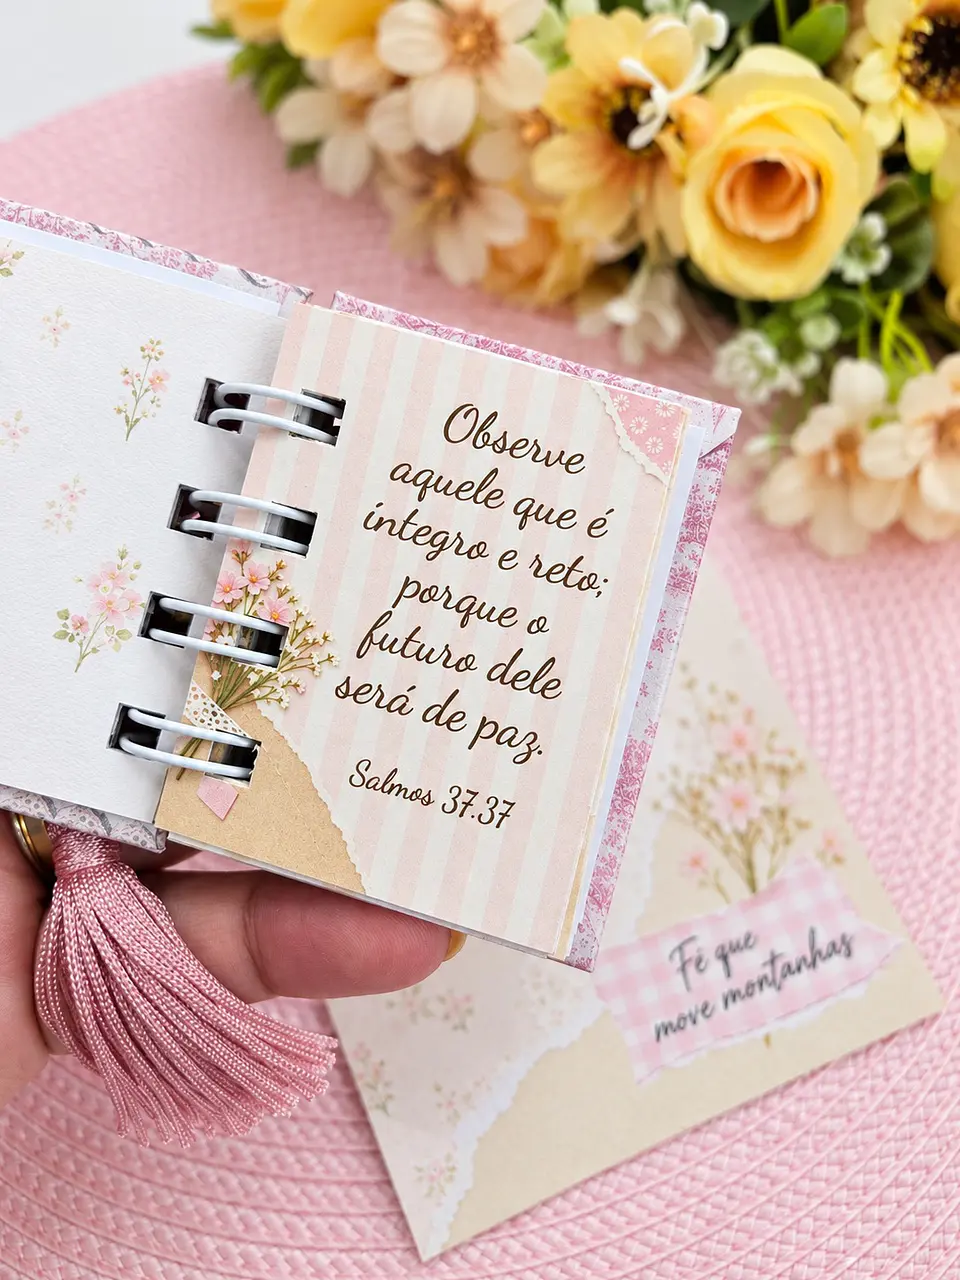 Observe
aquele que é
íntegro e reto;
porque o
futuro dele
será de paz.
Salmos 37.37
Fé que
move montanhas